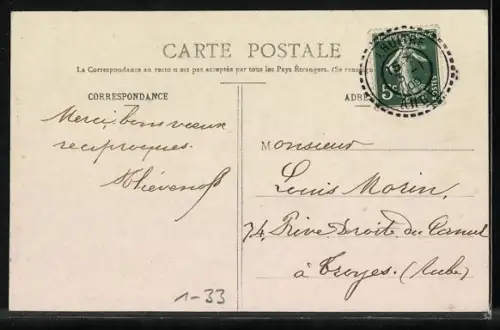 CARTE POSTALE
La Correspondance au recto n'est pas acceptée par tous les Pays Étrangers. (Se
CORRESPONDANCE
ADR
Merci, bons vœux
réciproques.
Thévenot
Monsieur
Louis Morin,
74, Rive Droite du Canal
à Troyes. (Aube)
5c
1-33